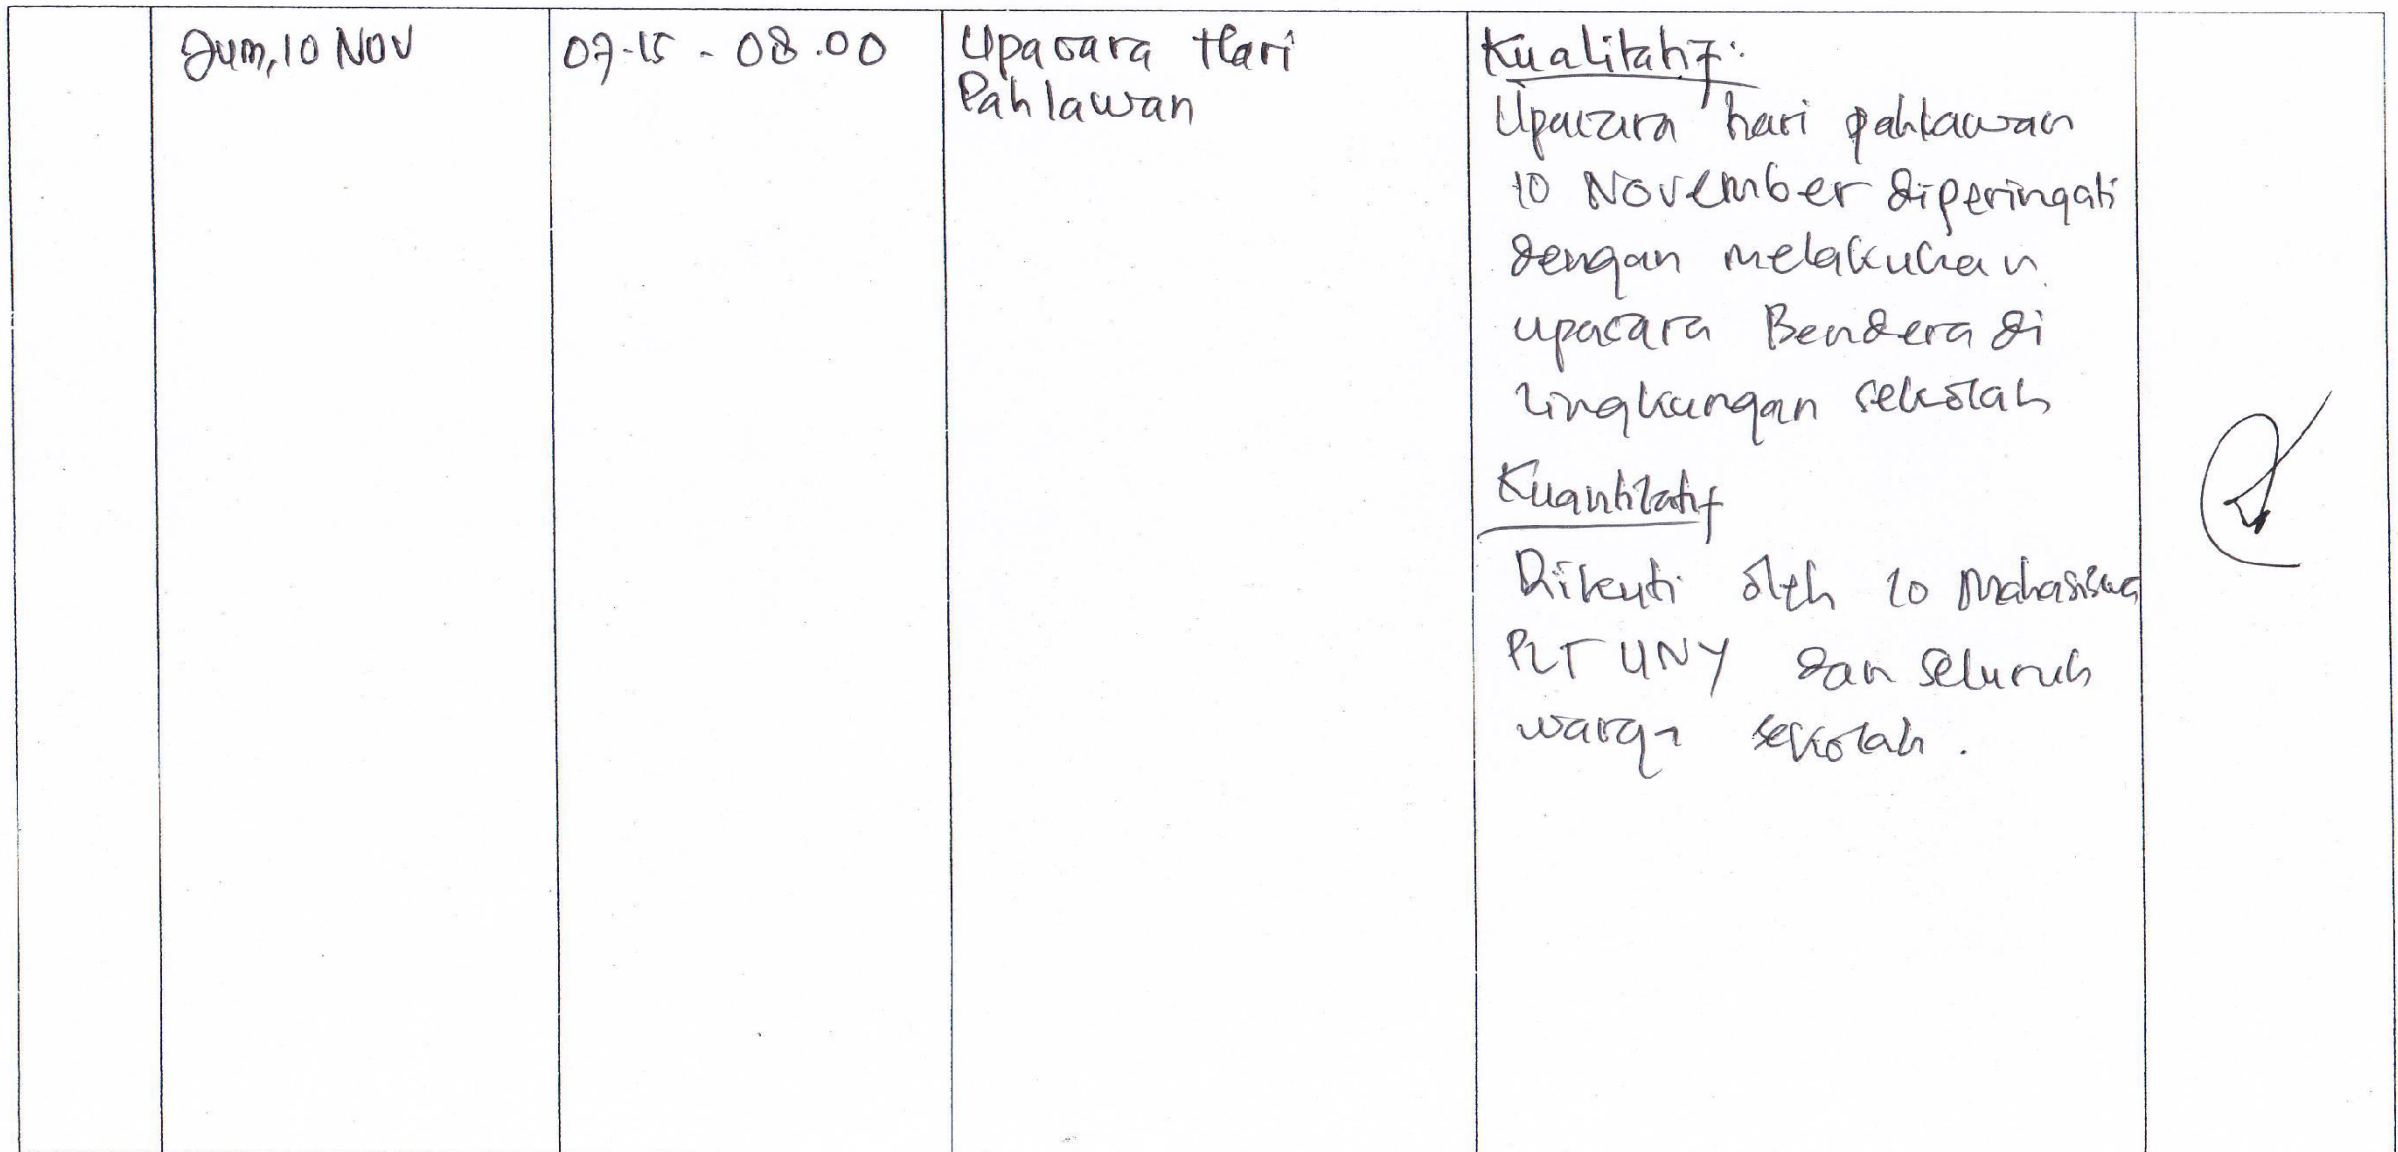 Jum, 10 Nov
07.15 - 08.00
Upacara Hari
Pahlawan
Kualitatif:
Upacara hari pahlawan
10 November diperingati
dengan melakukan
upacara Bendera di
lingkungan sekolah
Kuantitatif
Diikuti oleh 10 Mahasiswa
PLT UNY dan seluruh
warga sekolah.